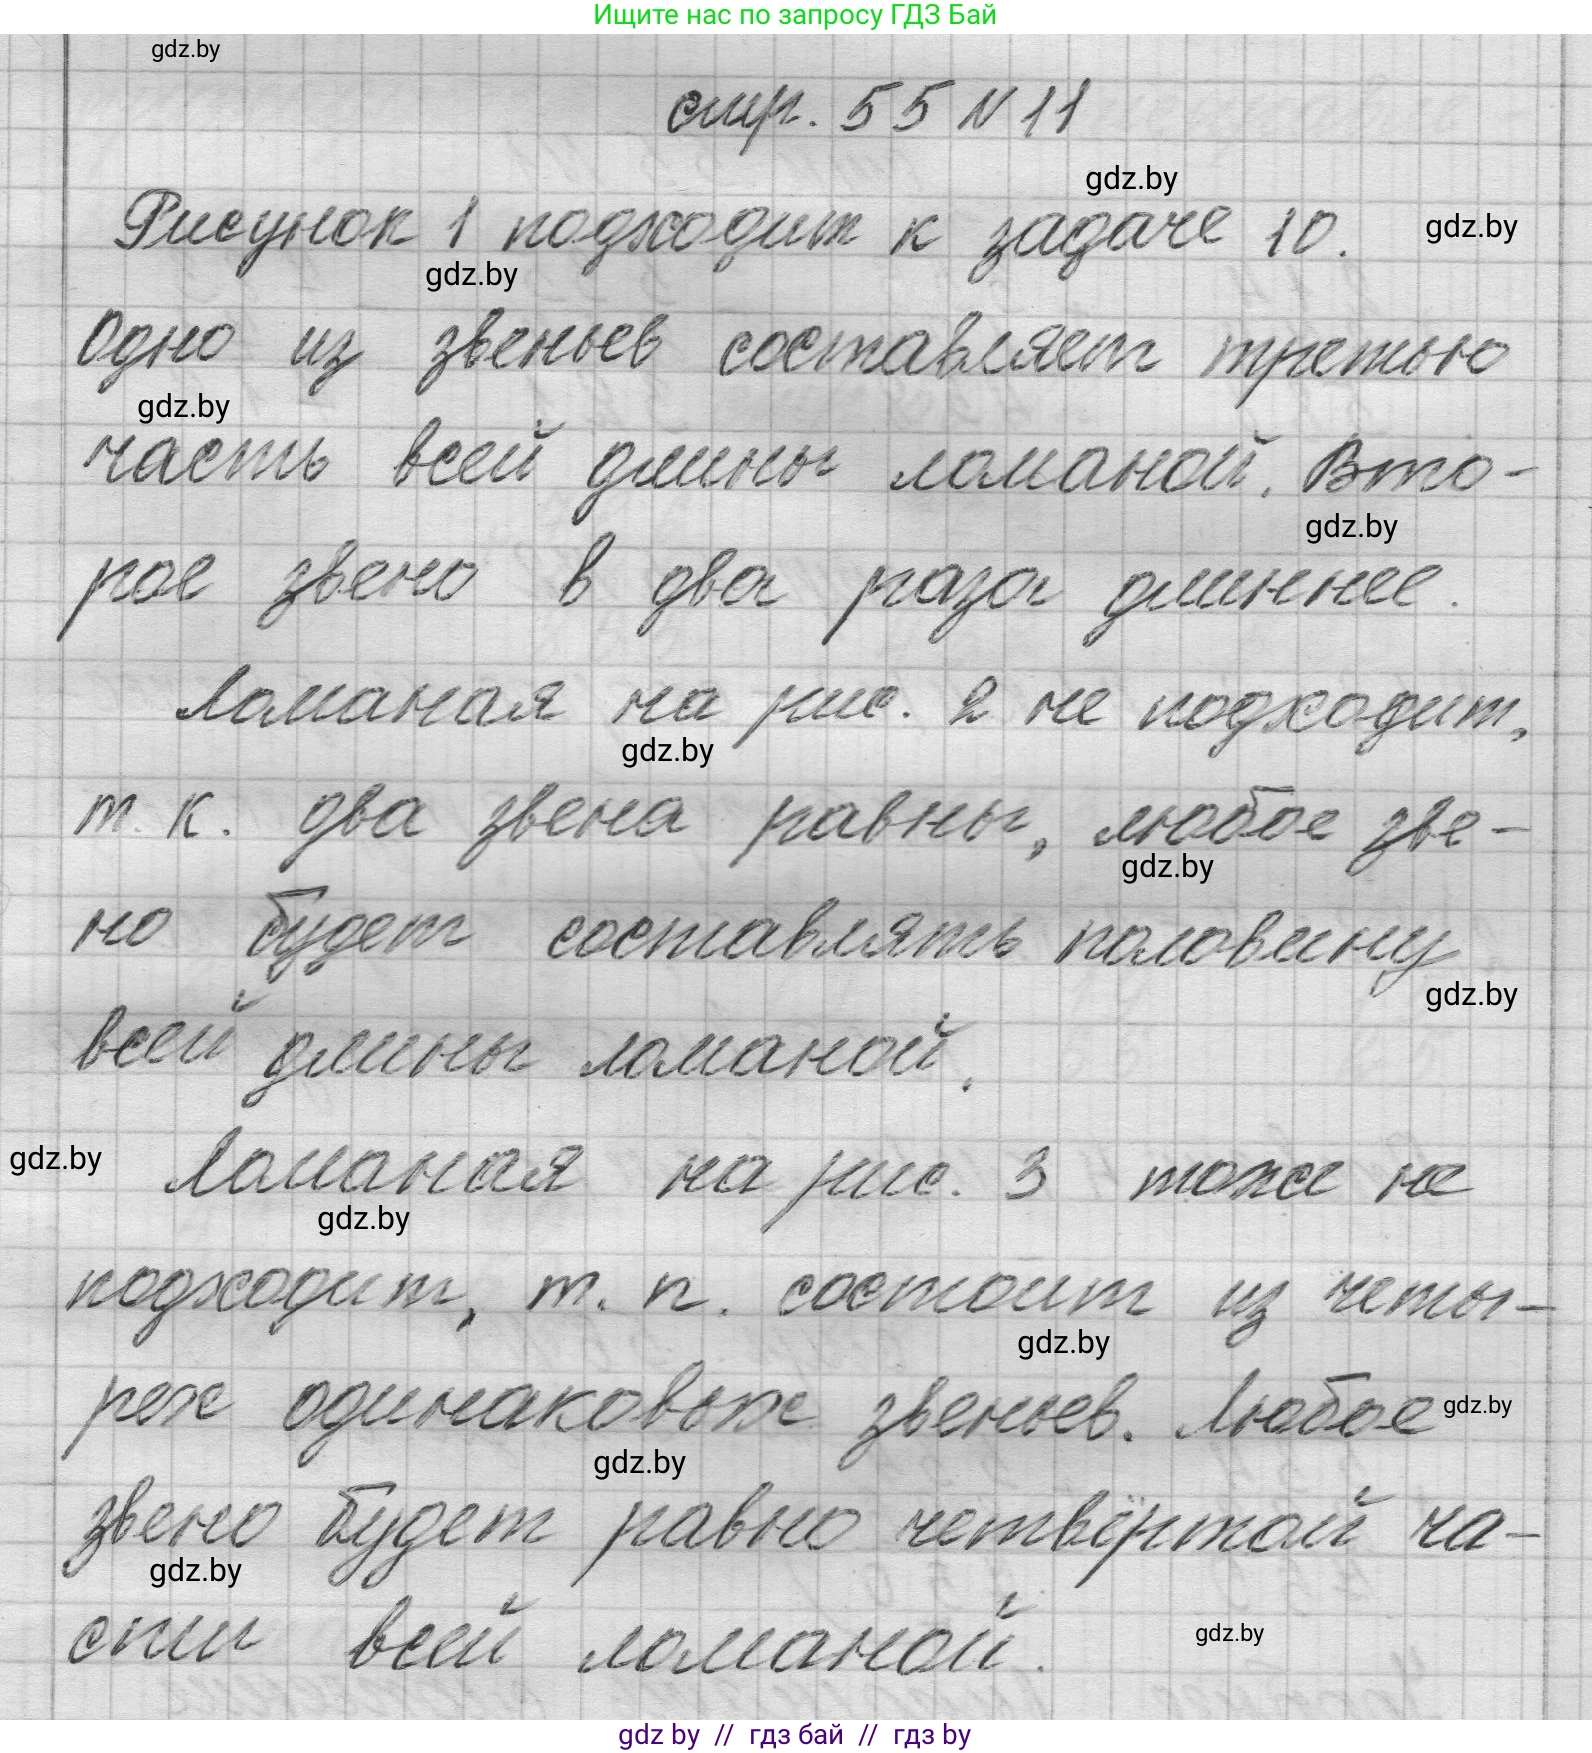 Ищите нас по запросу ГДЗ Бай
gdz.by
стр. 55 N 11
gdz.by
Рисунок 1 подходит к задаче 10.
gdz.by
gdz.by
Одно из звеньев составляет третью
gdz.by
часть всей длины ломаной. Вто-
gdz.by
рое звено в два раза длиннее.
Ломаная на рис. 2 не подходит,
gdz.by
т. к. два звена равны, любое зве-
gdz.by
но будет составлять половину
gdz.by
всей длины ломаной.
gdz.by
Ломаная на рис. 3 тоже не
gdz.by
подходит, т. к. состоит из четы-
gdz.by
рех одинаковых звеньев. Любое
gdz.by
gdz.by
звено будет равно четвёртой ча-
gdz.by
сти всей ломаной.
gdz.by
gdz by // гдз бай // гдз by